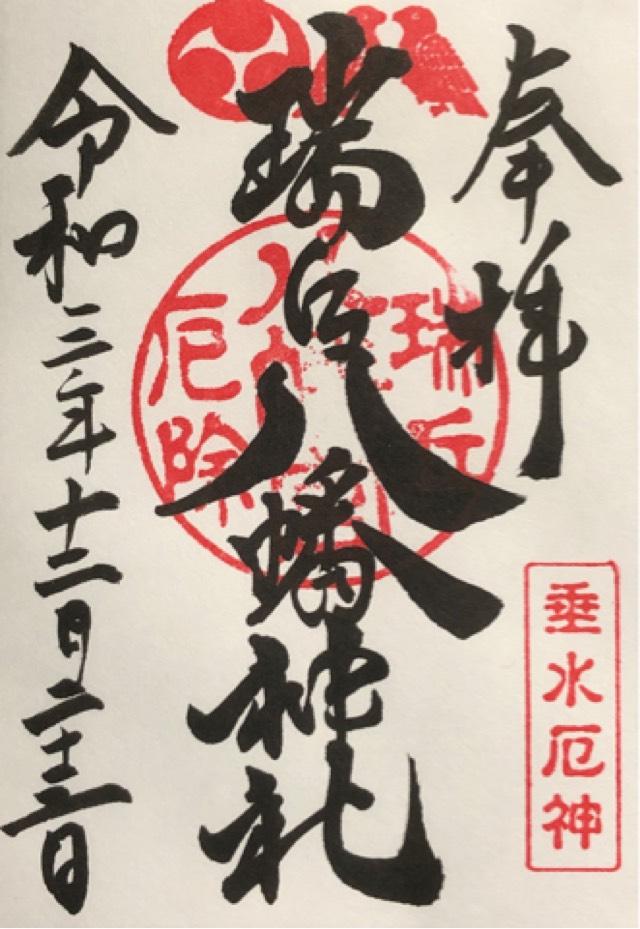 奉拝
垂水厄神
瑞丘八幡神社
瑞丘
厄除
令和三年十二月二十三日